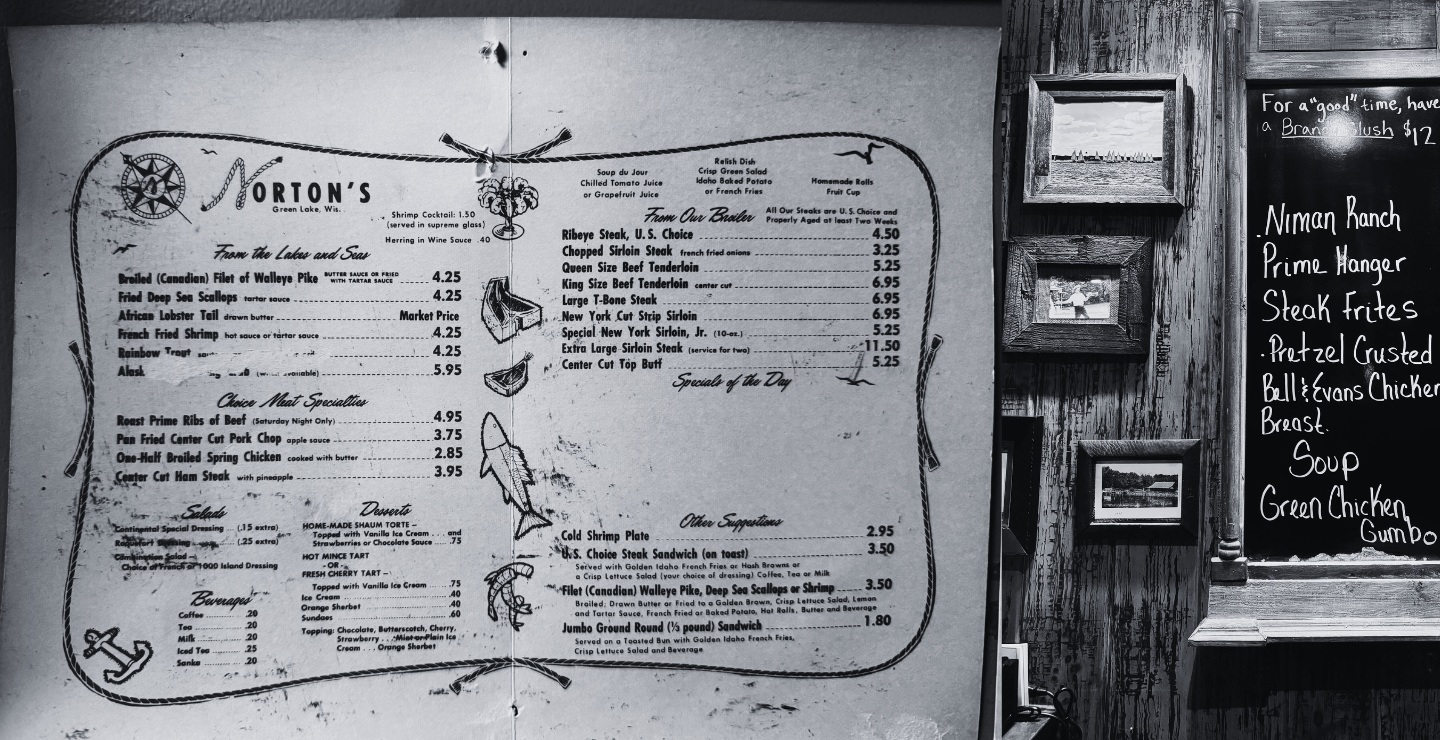 NORTON'S
Green Lake, Wis.
Shrimp Cocktail: 1.50
(served in supreme glass)
Herring in Wine Sauce .40
From the Lakes and Seas
Broiled (Canadian) Filet of Walleye Pike BUTTER SAUCE OR FRIED WITH TARTAR SAUCE 4.25
Fried Deep Sea Scallops tartar sauce 4.25
African Lobster Tail drawn butter Market Price
French Fried Shrimp hot sauce or tartar sauce 4.25
Rainbow Trout 4.25
Alask available) 5.95
Choice Meat Specialties
Roast Prime Ribs of Beef (Saturday Night Only) 4.95
Pan Fried Center Cut Pork Chop apple sauce 3.75
One-Half Broiled Spring Chicken cooked with butter 2.85
Center Cut Ham Steak with pineapple 3.95
Salads
Continental Special Dressing (.15 extra)
Roquefort Dressing (.25 extra)
Combination Salad –
Choice of French or 1000 Island Dressing
Beverages
Coffee .20
Tea .20
Milk .20
Iced Tea .25
Sanka .20
Desserts
HOME-MADE SHAUM TORTE –
Topped with Vanilla Ice Cream . . . and
Strawberries or Chocolate Sauce . .75
HOT MINCE TART
– OR –
FRESH CHERRY TART –
Topped with Vanilla Ice Cream .75
Ice Cream .40
Orange Sherbet .40
Sundaes .60
Topping: Chocolate, Butterscotch, Cherry,
Strawberry . . . Mint or Plain Ice
Cream . . . Orange Sherbet
Soup du Jour
Chilled Tomato Juice
or Grapefruit Juice
Relish Dish
Crisp Green Salad
Idaho Baked Potato
or French Fries
Homemade Rolls
Fruit Cup
From Our Broiler
All Our Steaks are U.S. Choice and
Properly Aged at least Two Weeks
Ribeye Steak, U.S. Choice 4.50
Chopped Sirloin Steak french fried onions 3.25
Queen Size Beef Tenderloin 5.25
King Size Beef Tenderloin center cut 6.95
Large T-Bone Steak 6.95
New York Cut Strip Sirloin 6.95
Special New York Sirloin, Jr. (10-oz.) 5.25
Extra Large Sirloin Steak (service for two) 11.50
Center Cut Top Butt 5.25
Specials of the Day
Other Suggestions
Cold Shrimp Plate 2.95
U.S. Choice Steak Sandwich (on toast) 3.50
Served with Golden Idaho French Fries or Hash Browns or
a Crisp Lettuce Salad (your choice of dressing) Coffee, Tea or Milk
Filet (Canadian) Walleye Pike, Deep Sea Scallops or Shrimp 3.50
Broiled, Drawn Butter or Fried to a Golden Brown, Crisp Lettuce Salad, Lemon
and Tartar Sauce, French Fried or Baked Potato, Hot Rolls, Butter and Beverage
Jumbo Ground Round (⅓ pound) Sandwich 1.80
Served on a Toasted Bun with Golden Idaho French Fries,
Crisp Lettuce Salad and Beverage
For a "good" time, have
a Brandy Slush $12
. Niman Ranch
Prime Hanger
Steak Frites
· Pretzel Crusted
Bell & Evans Chicken
Breast.
Soup
Green Chicken
Gumbo